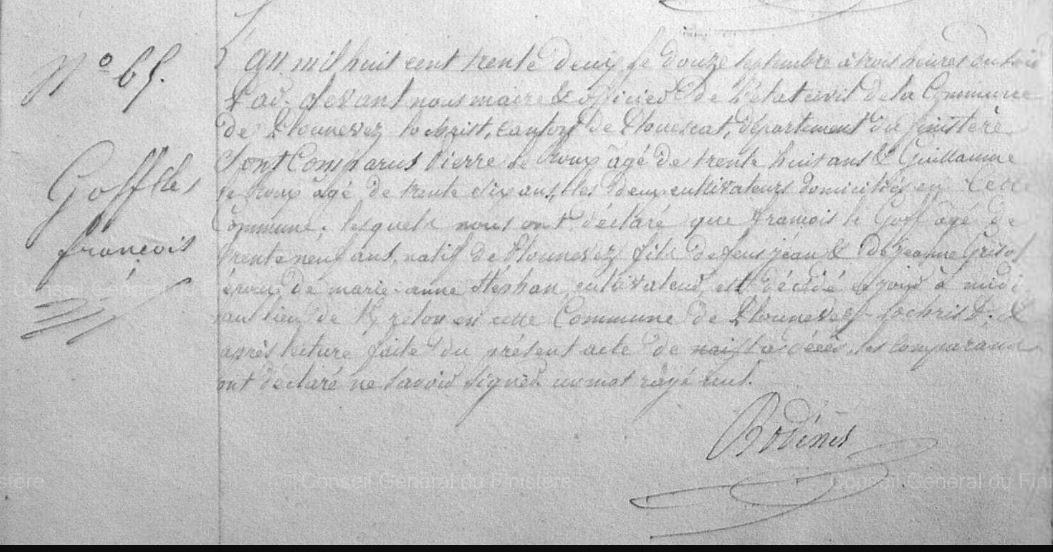 N° 65.
Goff Le
françois
L'an mil huit cent trente deux, le douze septembre à trois heures du soir
Par devant nous maire & officier de l'état civil de la Commune
de Plounevez lochrist, canton de Plouescat, département du finistère
Sont Comparus Pierre le Roux âgé de trente huit ans & Guillaume
le Roux âgé de trente six ans, les deux cultivateurs domiciliés en Cette
Commune, lesquels nous ont déclaré que françois le Goff âgé de
trente neuf ans, natif de Plounevez fils de feus jean & de jeanne
époux de marie-anne Stéphan, cultivateur est décédé ce jour à midi
au lieu de en cette Commune de Plounevez-Lochrist. &
après lecture faite du présent acte de décès, les comparans
ont déclaré ne savoir signer. un mot rayé nul.
Conseil Général du Finistère
Conseil Général du Finistère
Conseil Général du Finistère